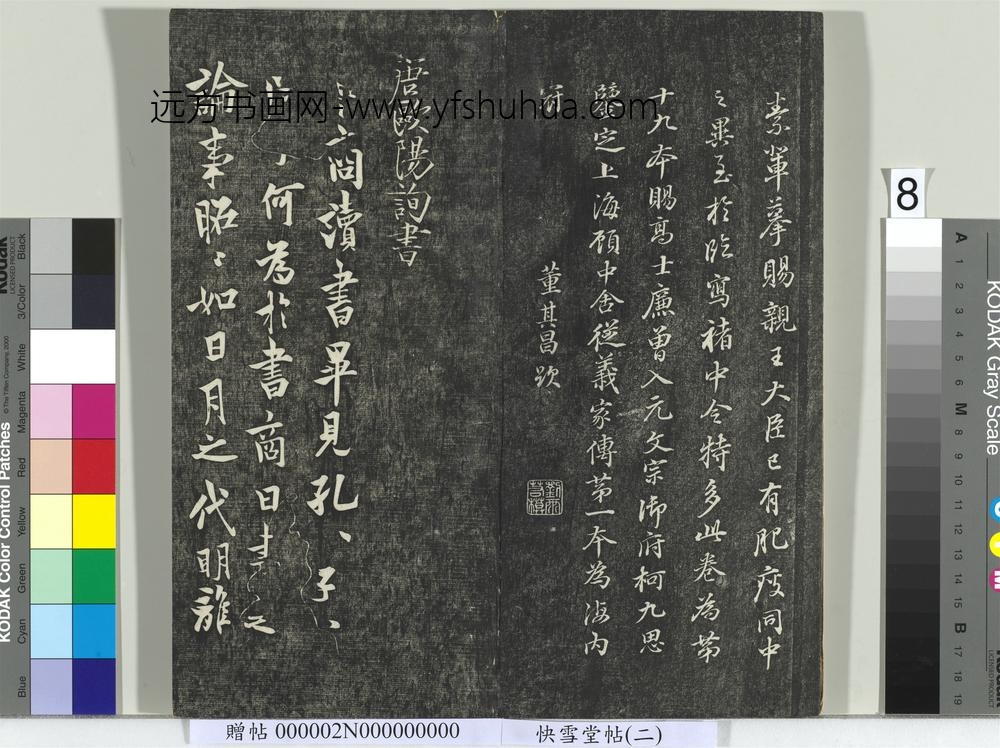 素輩摹賜親王大臣已有肥瘦同中
之異至於臨寫褚中令特多此卷為第
十九本賜高士廉曽入元文宗御府柯九思
鑒定上海顾中舍從義家傳第一本為海内
冠
董其昌跋
唐歐陽詢書
商讀書畢見孔、子、
何為於書商曰書之
論事昭、如日月之代明離
远方书画网-www.yfshuhua.com
8
KODAK Color Control Patches
© The Tiffen Company, 2000
Kodak
LICENSED PRODUCT
Blue
Cyan
Green
Yellow
Red
Magenta
White
3/Color
Black
KODAK Gray Scale
A 1 2 3 4 5 6 M 8 9 10 11 12 13 14 15 B 17 18 19
贈帖 000002N000000000
快雪堂帖(二)